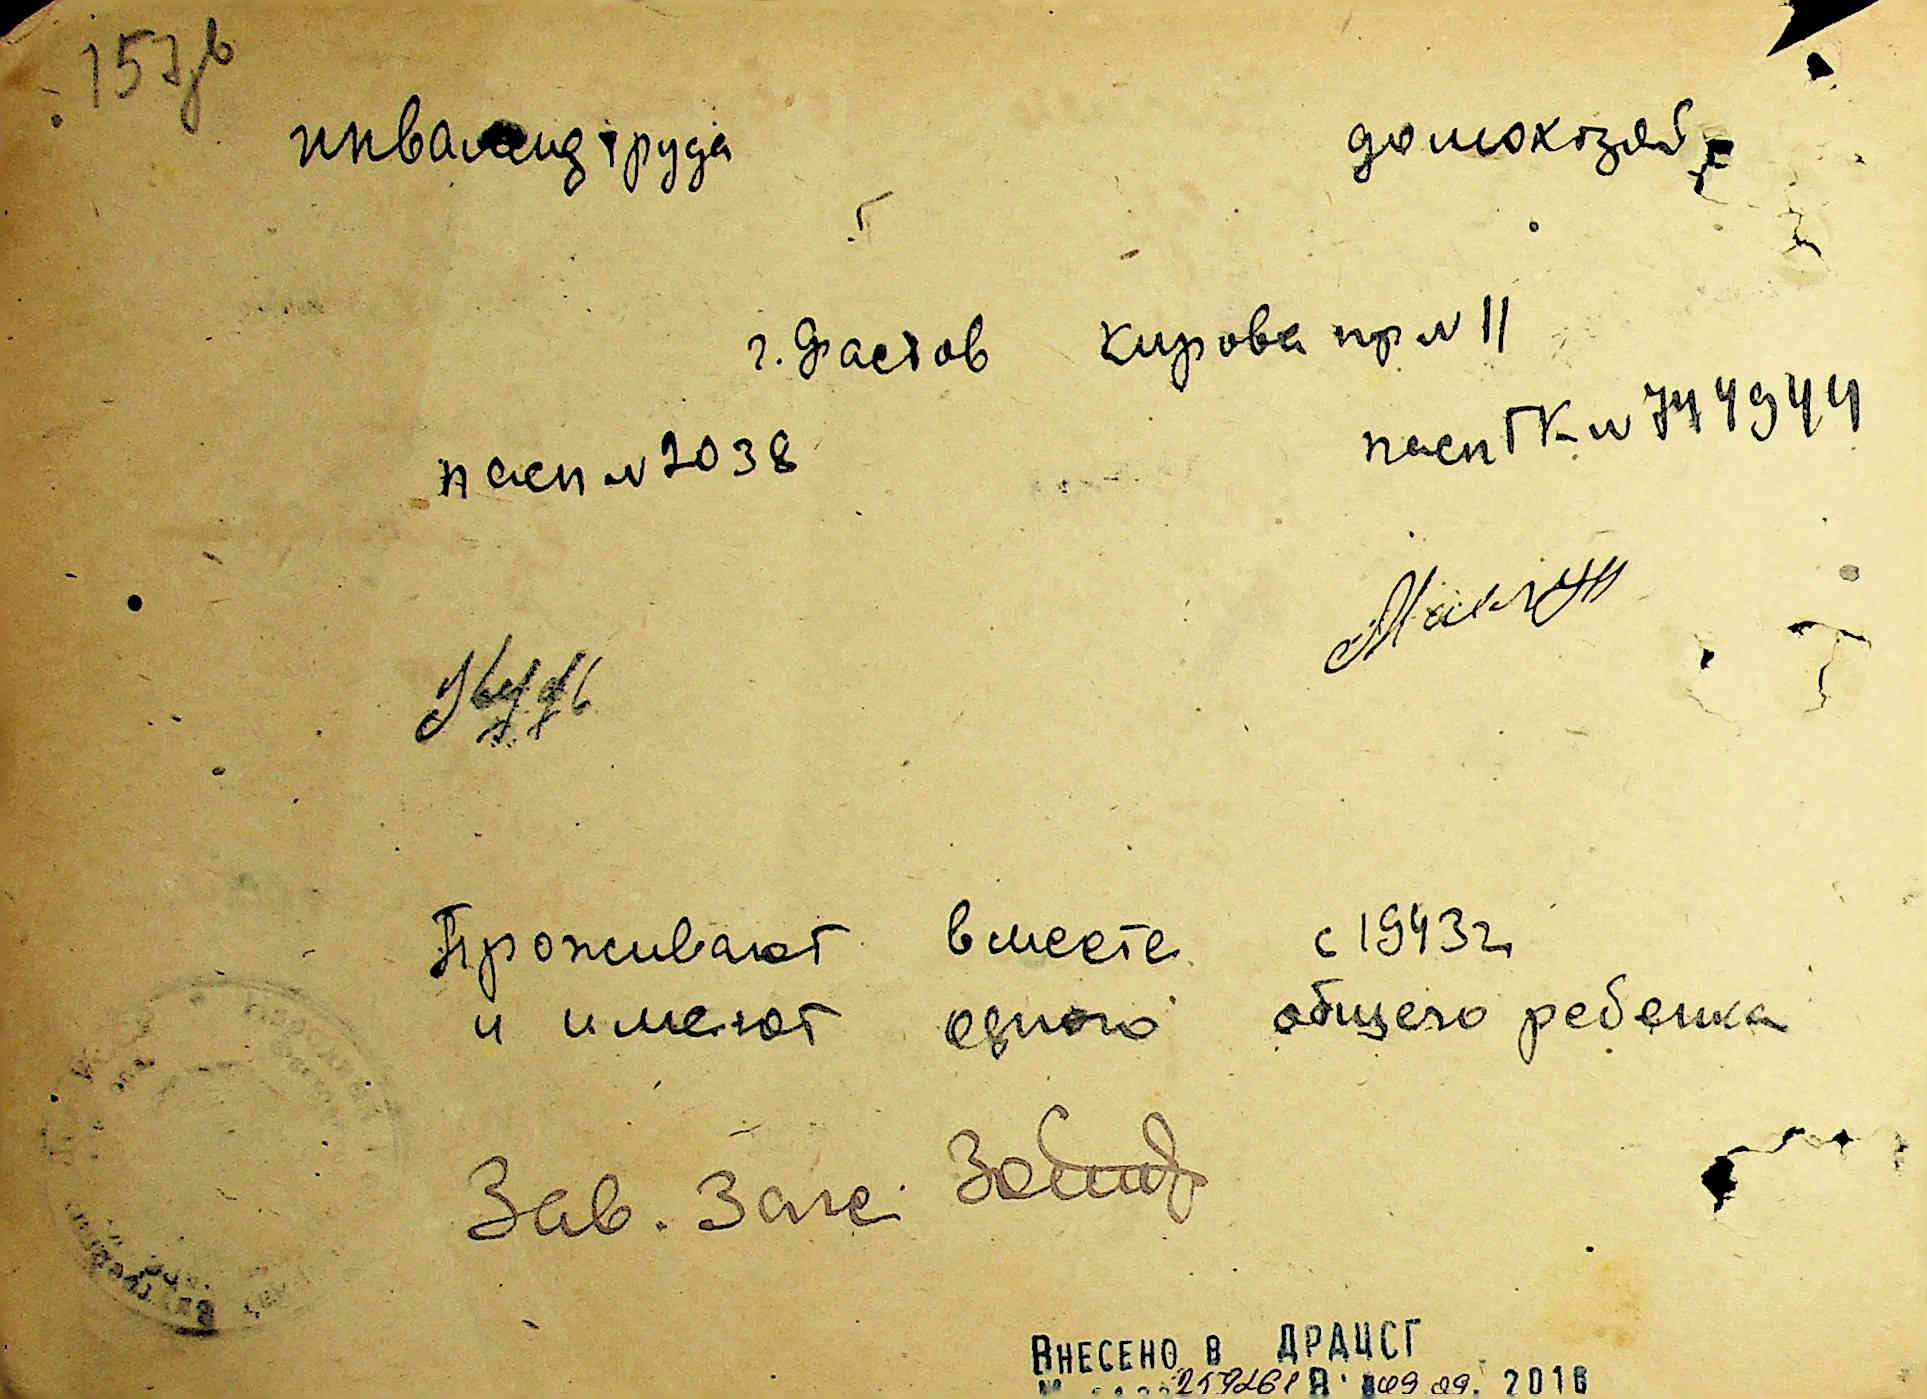 157
инвалид труда домохозяй
г. Фастов Кирова пр № 11
пасп № 2038 пасп ГК № 744944
Проживают вместе с 1943 г
и имеют одного общего ребенка
Зав. Загс
Внесено в ДРАЦСГ
09.09. 2016